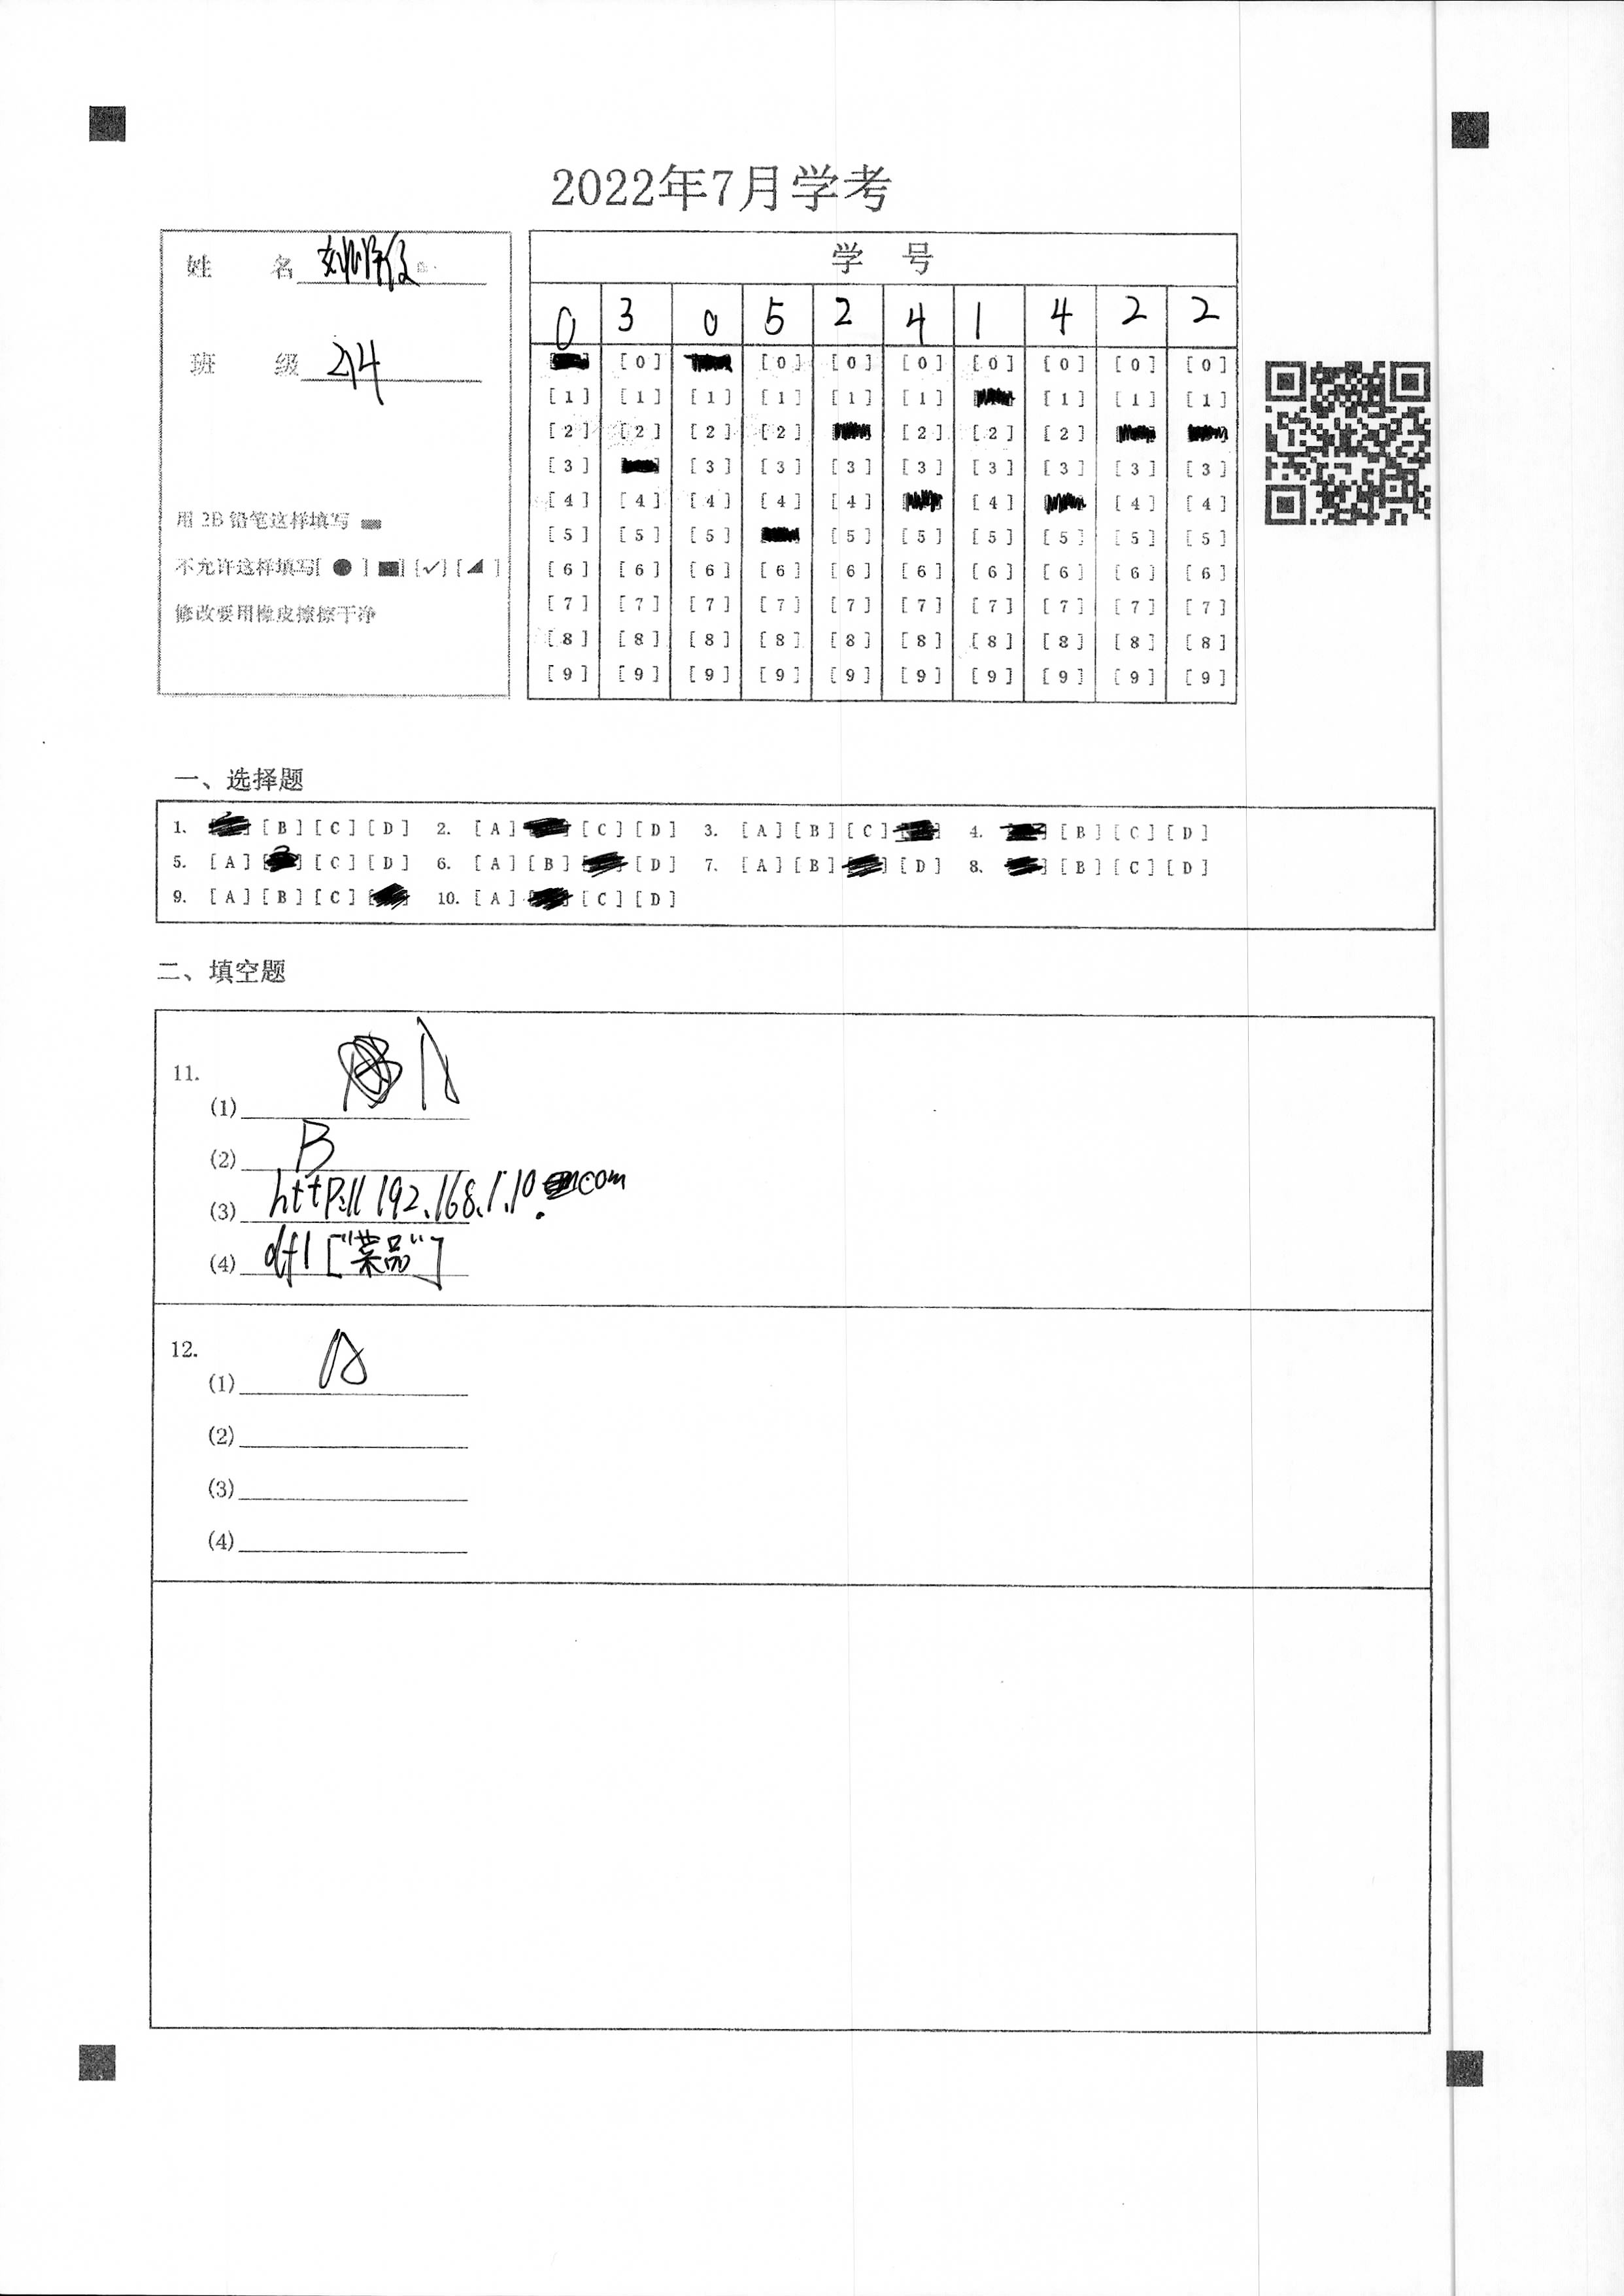 2022年7月学考
姓 名
班 级 214
用 2B 铅笔这样填写
不允许这样填写[ ● ] [■] [✓] [◢ ]
修改要用橡皮擦擦干净
学 号
0 3 0 5 2 4 1 4 2 2
[0] [0] [0] [0] [0] [0] [0] [0]
[1] [1] [1] [1] [1] [1] [1] [1] [1]
[2] [2] [2] [2] [2] [2] [2]
[3] [3] [3] [3] [3] [3] [3] [3] [3]
[4] [4] [4] [4] [4] [4] [4] [4]
[5] [5] [5] [5] [5] [5] [5] [5] [5]
[6] [6] [6] [6] [6] [6] [6] [6] [6] [6]
[7] [7] [7] [7] [7] [7] [7] [7] [7] [7]
[8] [8] [8] [8] [8] [8] [8] [8] [8] [8]
[9] [9] [9] [9] [9] [9] [9] [9] [9] [9]
一、选择题
1. [B] [C] [D] 2. [A] [C] [D] 3. [A] [B] [C] 4. [B] [C] [D]
5. [A] [C] [D] 6. [A] [B] [D] 7. [A] [B] [D] 8. [B] [C] [D]
9. [A] [B] [C] 10. [A] [C] [D]
二、填空题
11.
(1) A
(2) B
(3) http:// 192.168.1.10.com
(4) df1["菜品"]
12.
(1) A
(2)
(3)
(4)